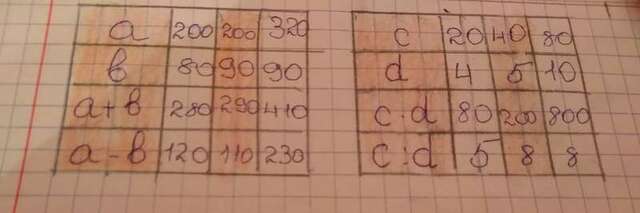 a 200 200 320
в 80 90 90
a+в 280 290 410
a-в 120 110 230
c 20 40 80
d 4 5 10
c·d 80 200 800
c:d 5 8 8